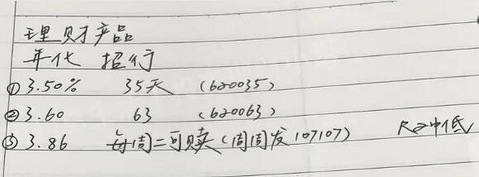 理财产品
年化 招行
① 3.50% 35天 (620035)
② 3.60 63 (620063)
③ 3.86 每周二可赎(周周发107107) R2中低